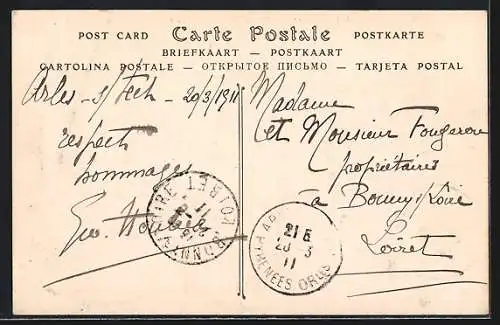 POST CARD Carte Postale POSTKARTE
BRIEFKAART — POSTKAART
CARTOLINA POSTALE — ОТКРЫТОЕ ПИСЬМО — TARJETA POSTAL
Arles - s/Tech - 20/3/1911
respect
hommages
Geo.
Madame
et Monsieur Fougeron
propriétaires
à Bonny s/Loire
Loiret
LOIRET
21 E
20 - 3
11
PYRENEES ORles